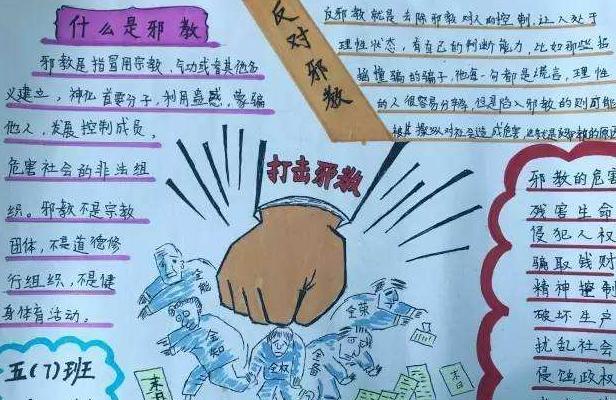 什么是邪教
邪教是指冒用宗教，气功或者其他名
义建立，神化首要分子，利用蛊惑，蒙骗
他人，发展控制成员，
危害社会的非法组
织。邪教不是宗教
团体，不是道德修
行组织，不是健
身体育活动。
五(7)班
反对邪教
反邪教就是去除邪教对人的控制，让人处于
理性状态，有自己的判断能力，比如那些招
摇撞骗的骗子，他每一句都是谎言，理性
的人很容易分辨，但是陷入邪教的则可能
被其操纵对社会造成危害
打击邪教
全能
全知
全权
全善
全荣
末日
末日
邪教的危害
残害生命
侵犯人权
骗取钱财
精神控制
破坏生产
扰乱社会
侵蚀政权